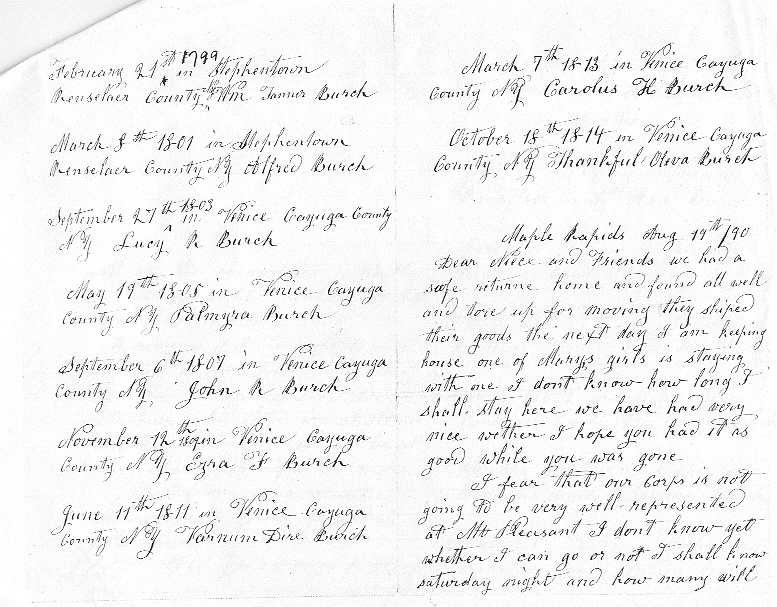 February 21st 1799 in Stephentown
Renselaer County NY Wm Tanner Burch
March 8th 1801 in Stephentown
Renselaer County NY Alfred Burch
September 27th 1803 in Venice Cayuga County
NY Lucy R Burch
May 19th 1805 in Venice Cayuga
County NY Palmyra Burch
September 6th 1807 in Venice Cayuga
County NY John R Burch
November 12th 1809 in Venice Cayuga
County NY Ezra F Burch
June 11th 1811 in Venice Cayuga
County NY Varnum Dire Burch
March 7th 1813 in Venice Cayuga
County NY Carolus H Burch
October 18th 1814 in Venice Cayuga
County NY Thankful Oleva Burch
Maple Rapids Aug 19th/90
Dear Niece and Friends we had a
safe returne home and found all well
and tore up for moving they shiped
their goods the next day I am keeping
house one of Marys girls is staying
with one I dont know how long I
shall stay here we have had very
nice wether I hope you had it as
good while you was gone
I fear that our Corps is not
going to be very well represented
at Mt Pleasant I dont know yet
whether I can go or not I shall know
saturday night and how many will